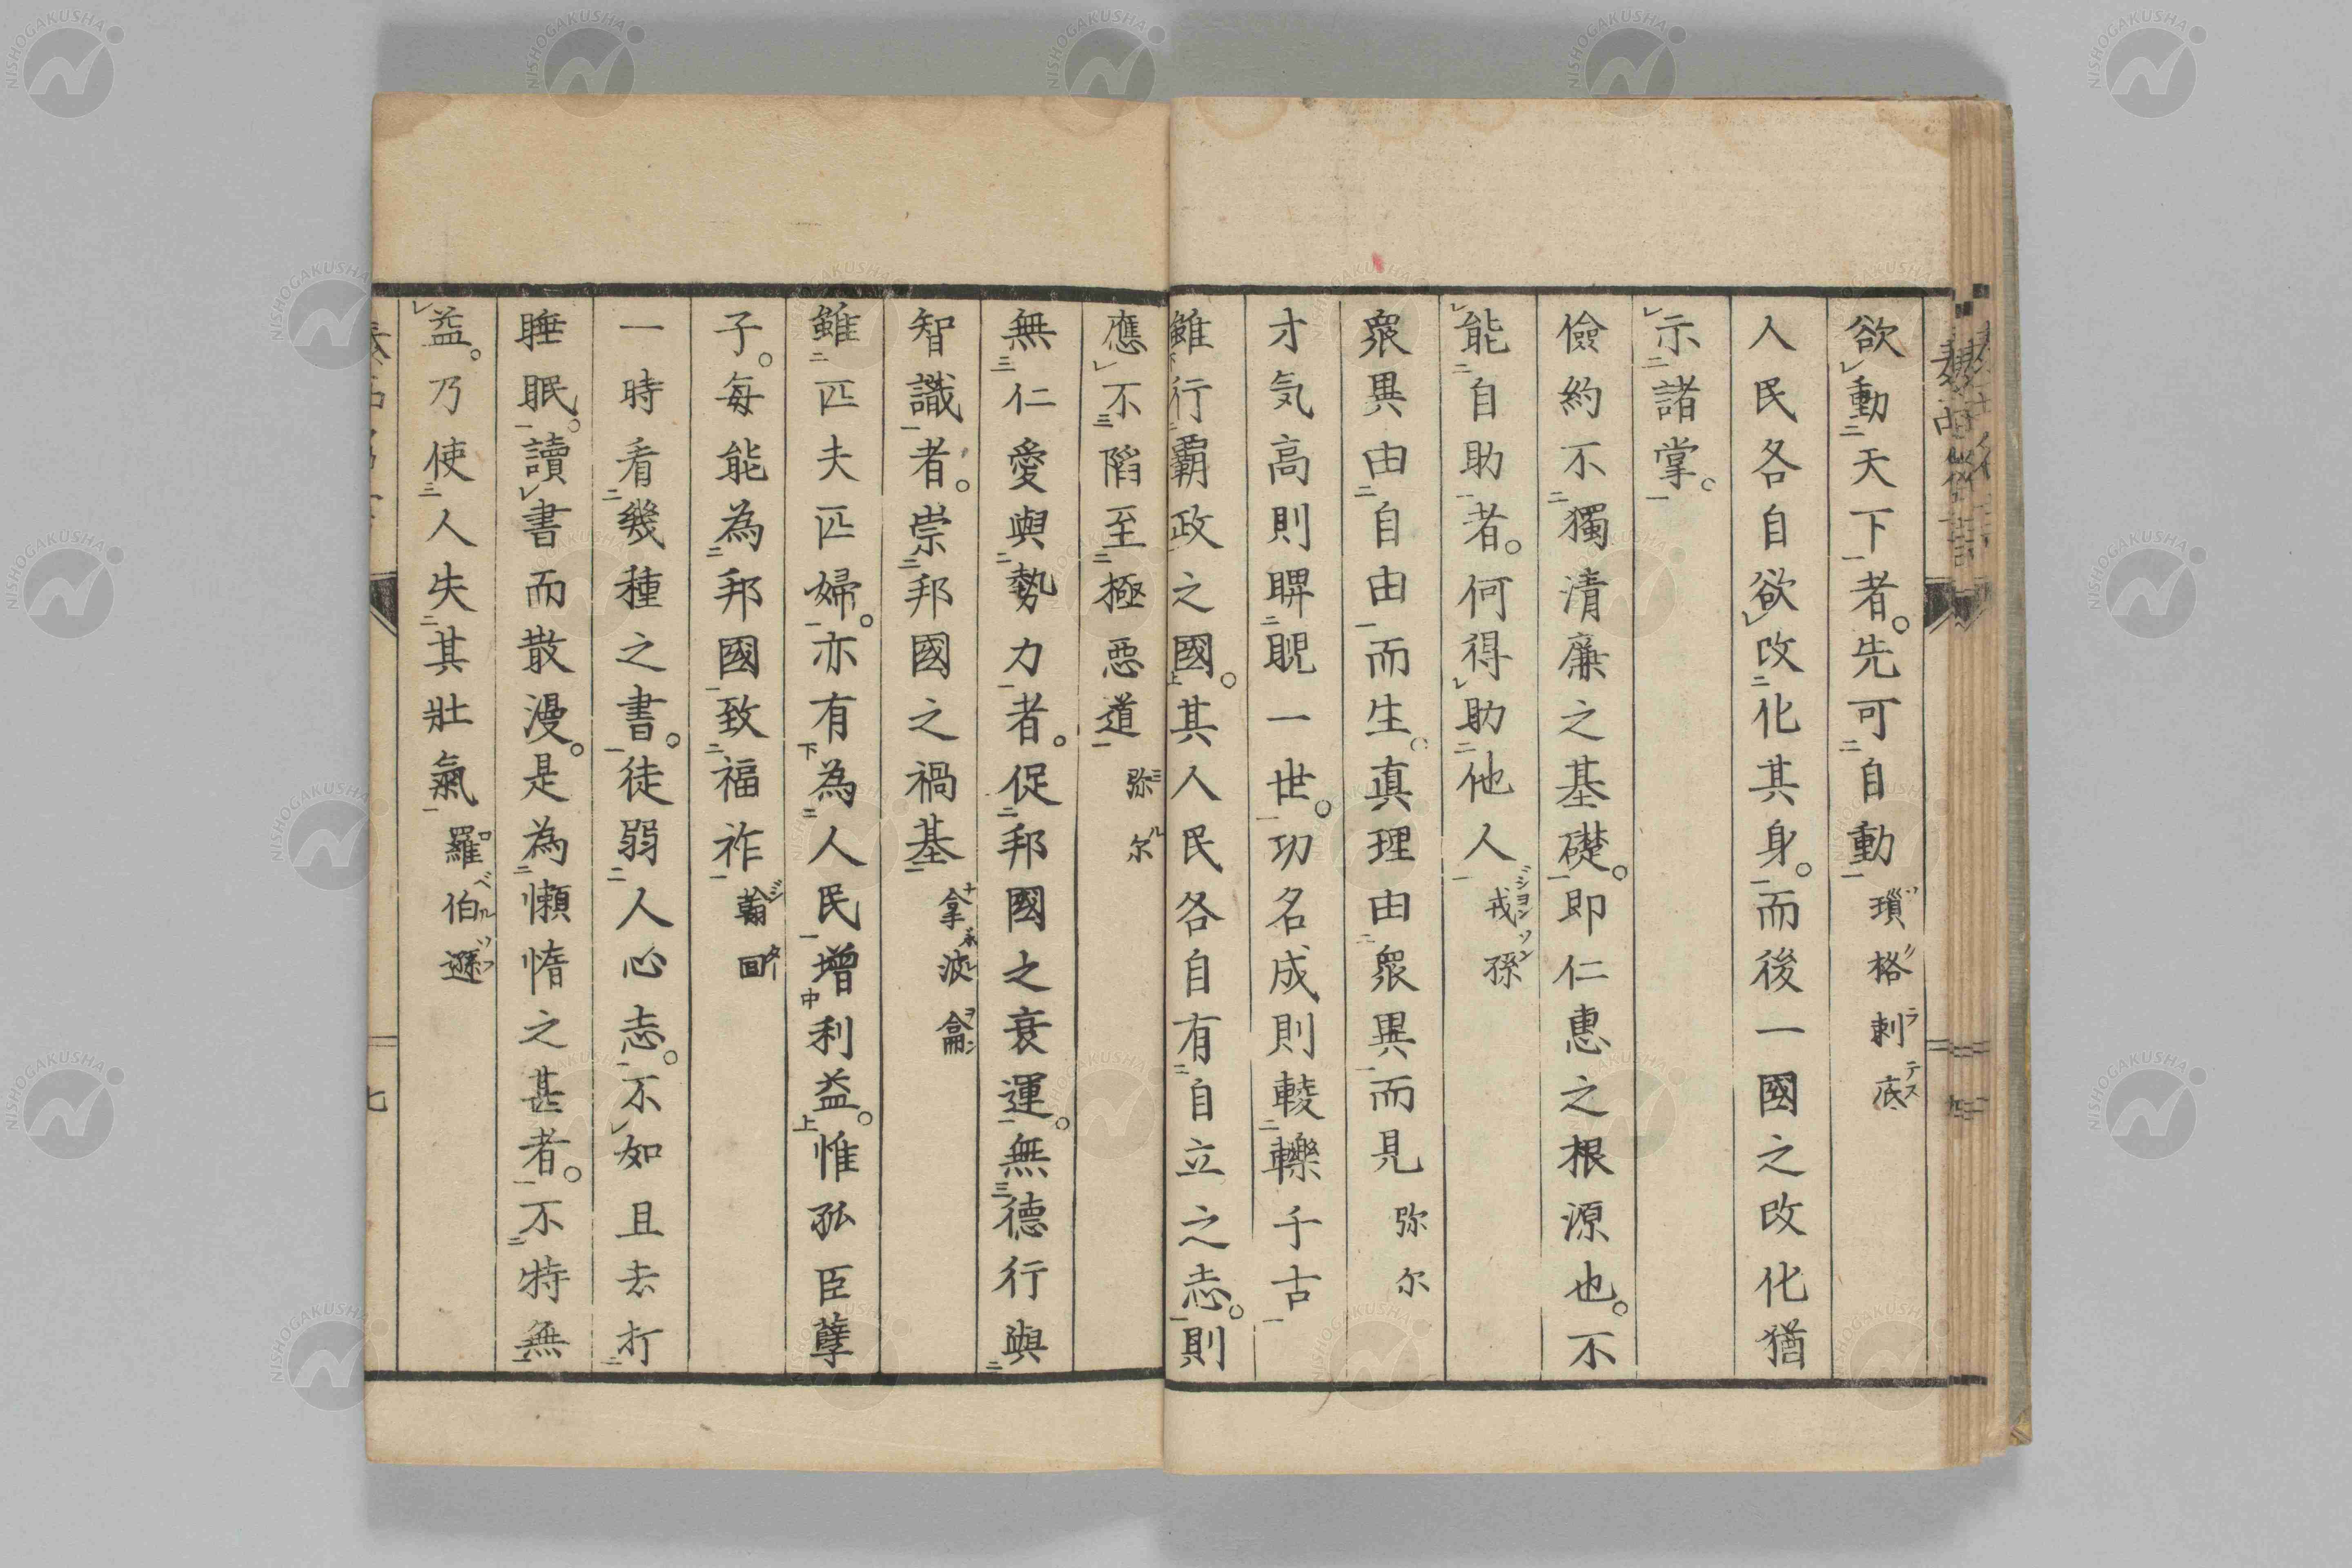 欲動天下者。先可自動 瑣格剌底
人民各自欲改化其身。而後一國之改化猶
示諸掌。
儉約不獨清廉之基礎。即仁惠之根源也。不
能自助者。何得助他人 戎孫
衆異由自由而生。真理由衆異而見 弥尓
才気高則睥睨一世。功名成則輘轢千古
雖行霸政之國。其人民各自有自立之志。則
應不陷至極惡道 弥尓
無仁愛與勢力者。促邦國之衰運。無德行與
智識者。崇邦國之禍基 拿波侖
雖匹夫匹婦。亦有為人民增利益。惟孤臣孽
子。每能為邦國致福祚 翰回
一時看幾種之書。徒弱人心志。不如且去打
睡眠。讀書而散漫。是為懶惰之甚者。不特無
益。乃使人失其壯氣 羅伯遜
七
NISHOGAKUSHA